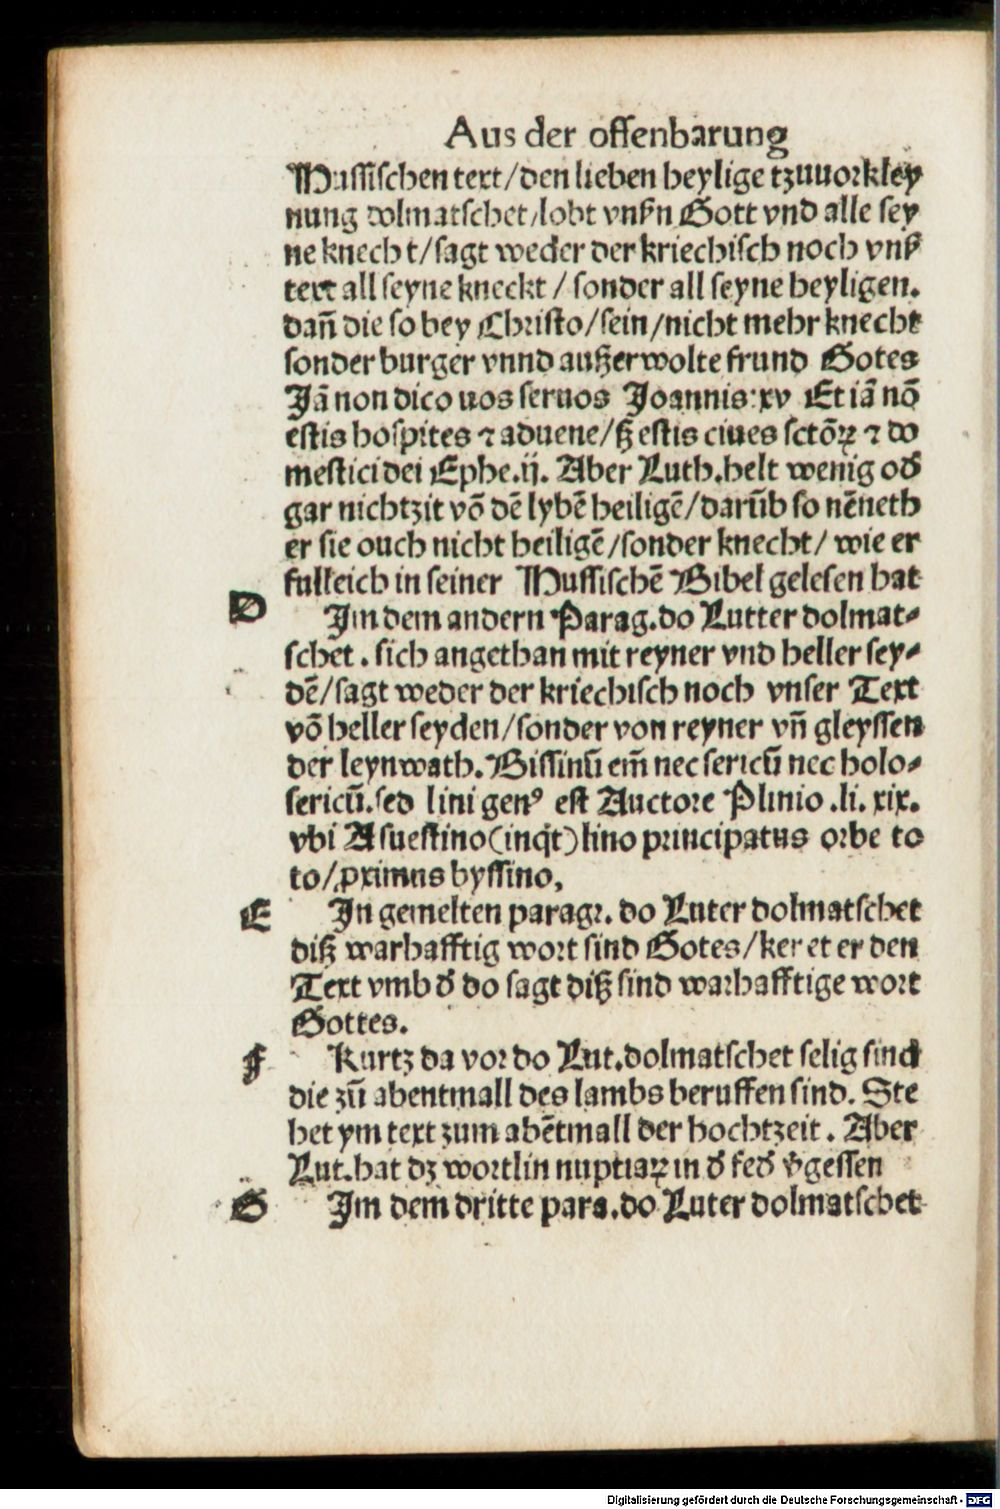 Aus der offenbarung
Hussischen text/den lieben heylige tzuuorkley
nung dolmatschet/lobt vnßn Gott vnd alle sey
ne knech t/sagt weder der kriechisch noch vnß
text all seyne kneckt / sonder all seyne heyligen.
dañ die so bey Christo/sein/nicht mehr knecht
sonder burger vnnd außerwolte frund Gotes
Jã non dico uos seruos Joannis:xv Et iã nõ
estis hospites ⁊ aduene/ß estis ciues sctõꝝ ⁊ do
mestici dei Ephe.ij. Aber Luth.helt wenig od̃
gar nichtzit võ dẽ lybẽ heiligẽ/darũb so nẽneth
er sie ouch nicht heiligẽ/sonder knecht/ wie er
fulleich in seiner Hussischẽ Bibel gelesen hat
D Jm dem andern Parag.do Lutter dolmat⸗
schet . sich angethan mit reyner vnd heller sey⸗
dẽ/sagt weder der kriechisch noch vnser Text
võ heller seyden/sonder von reyner vñ gleyssen
der leynwath. Bissinũ em̃ nec sericũ nec holo⸗
sericũ.sed lini genꝰ est Auctore Plinio .li. xix.
vbi Asuestino(inq̃t)lino principatus orbe to
to/ꝓximus byssino,
E Jn gemelten paragr. do Luter dolmatschet
diß warhafftig wort sind Gotes/ker et er den
Text vmb d̃ do sagt diß sind warhafftige wort
Gottes.
F Kurtz da vor do Lut.dolmatschet selig sind
die zũ abentmall des lambs beruffen sind. Ste
het ym text zum abẽtmall der hochtzeit . Aber
Lut.hat dz wortlin nuptiaꝝ in d̃ fed̃ ṽgessen
G Jm dem dritte para.do Luter dolmatschet
Digitalisierung gefördert durch die Deutsche Forschungsgemeinschaft - DFG